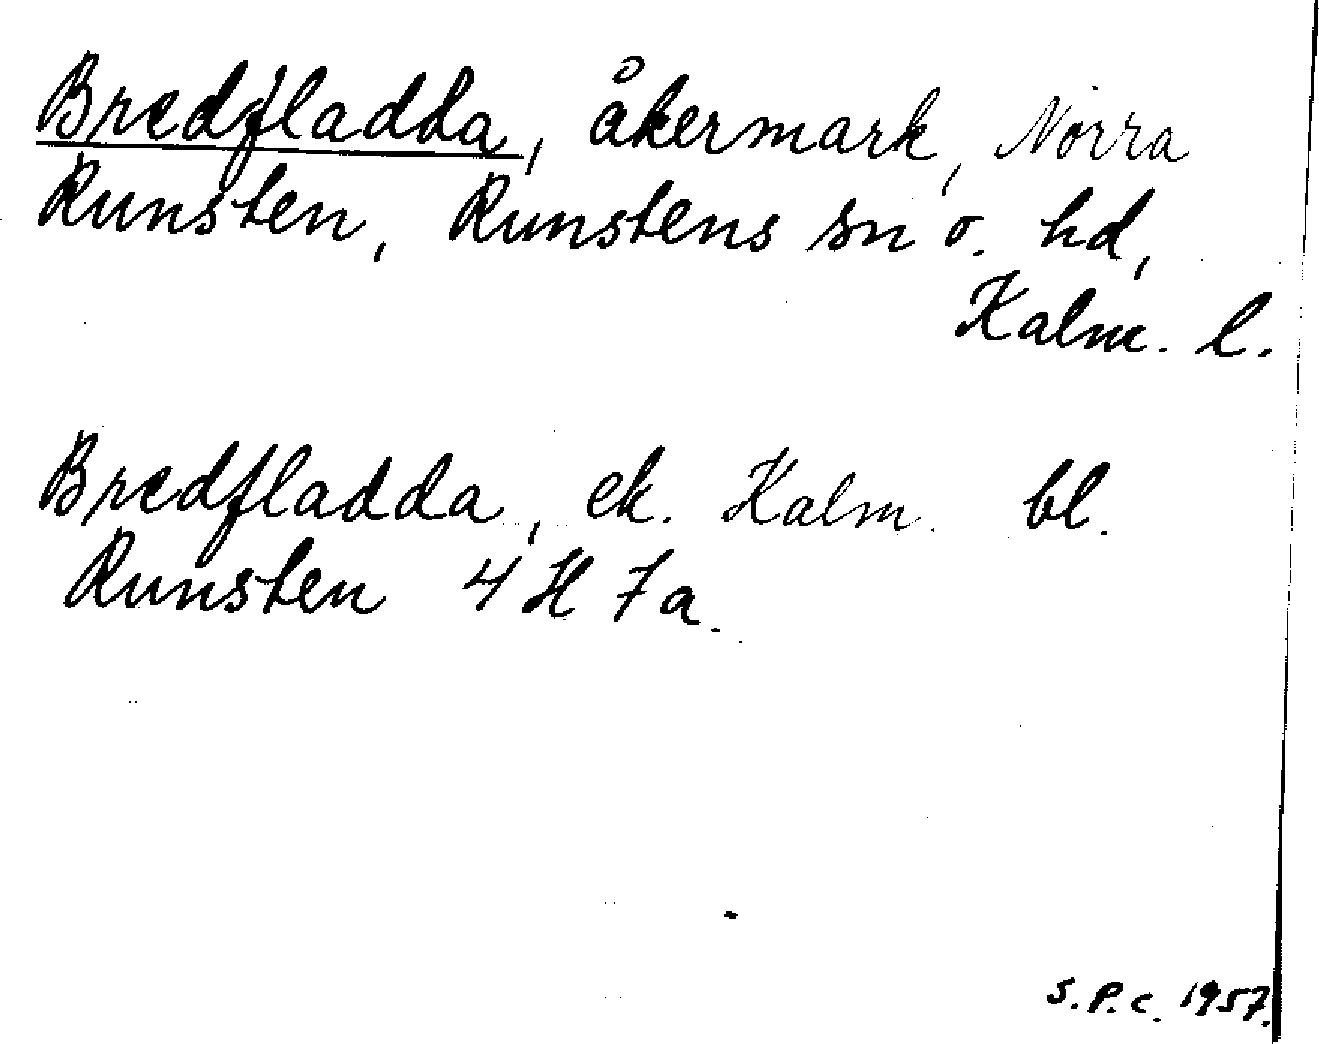 Bredfladda, åkermark, Norra
Runsten, Runstens sn o. hd,
Kalm. l.
Bredfladda, ek. Kalm. bl.
Runsten 4 H 7a.
S.P.C. 1957.